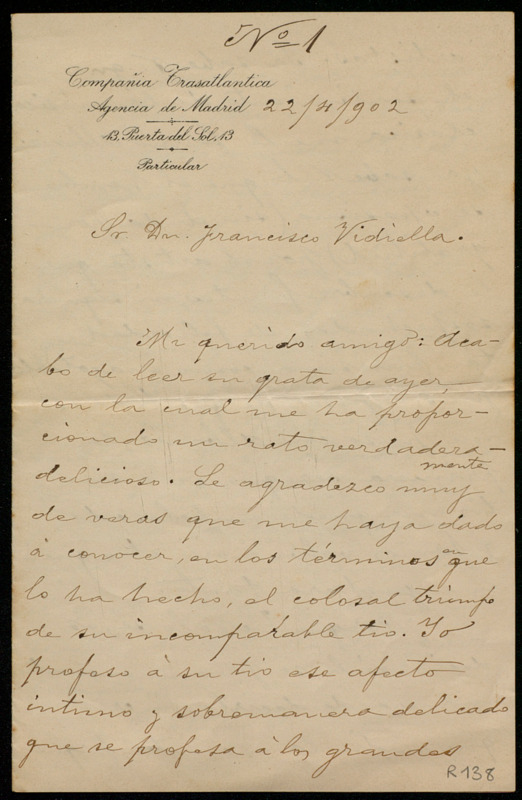 Nº 1
Compañia Trasatlantica
Agencia de Madrid 22/4/902
13, Puerta del Sol, 13
Particular
Sr. Dn. Francisco Vidiella.
Mi querido amigo: Aca-
bo de leer su grata de ayer
con la cual me ha propor-
cionado un rato verdadera-
mente
delicioso. Le agradezco muy
de veras que me haya dado
á conocer, en los términos en que
lo ha hecho, el colosal triunfo
de su incomparable tio. Yo
profeso á su tio ese afecto
intimo y sobremanera delicado
que se profesa á los grandes
R138